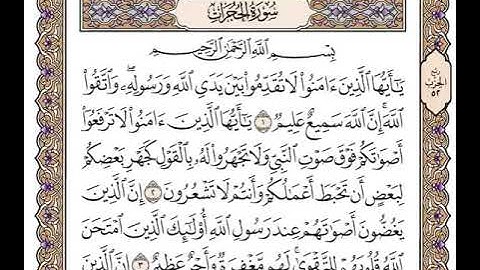 سُورَةُ الحُجُرَاتِ
بِسْمِ اللَّهِ الرَّحْمَٰنِ الرَّحِيمِ
يَٰٓأَيُّهَا الَّذِينَ ءَامَنُوا۟ لَا تُقَدِّمُوا۟ بَيْنَ يَدَىِ اللَّهِ وَرَسُولِهِۦ ۖ وَاتَّقُوا۟
اللَّهَ ۚ إِنَّ اللَّهَ سَمِيعٌ عَلِيمٌ ١ يَٰٓأَيُّهَا الَّذِينَ ءَامَنُوا۟ لَا تَرْفَعُوٓا۟
أَصْوَٰتَكُمْ فَوْقَ صَوْتِ النَّبِىِّ وَلَا تَجْهَرُوا۟ لَهُۥ بِالْقَوْلِ كَجَهْرِ بَعْضِكُمْ
لِبَعْضٍ أَن تَحْبَطَ أَعْمَٰلُكُمْ وَأَنتُمْ لَا تَشْعُرُونَ ٢ إِنَّ الَّذِينَ
يَغُضُّونَ أَصْوَٰتَهُمْ عِندَ رَسُولِ اللَّهِ أُو۟لَٰٓئِكَ الَّذِينَ امْتَحَنَ
اللَّهُ قُلُوبَهُمْ لِلتَّقْوَىٰ ۚ لَهُم مَّغْفِرَةٌ وَأَجْرٌ عَظِيمٌ ٣ إِنَّ الَّذِينَ
رُبْع
الحِزْب
٥٢